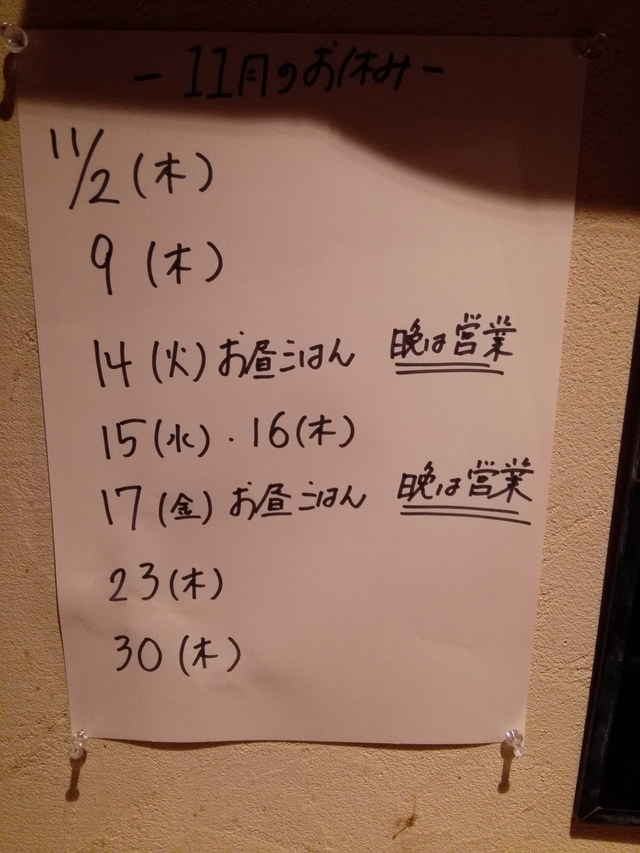 - 11月のお休み -
11/2 (木)
9 (木)
14 (火) お昼ごはん 晩は営業
15 (水) ・ 16 (木)
17 (金) お昼ごはん 晩は営業
23 (木)
30 (木)